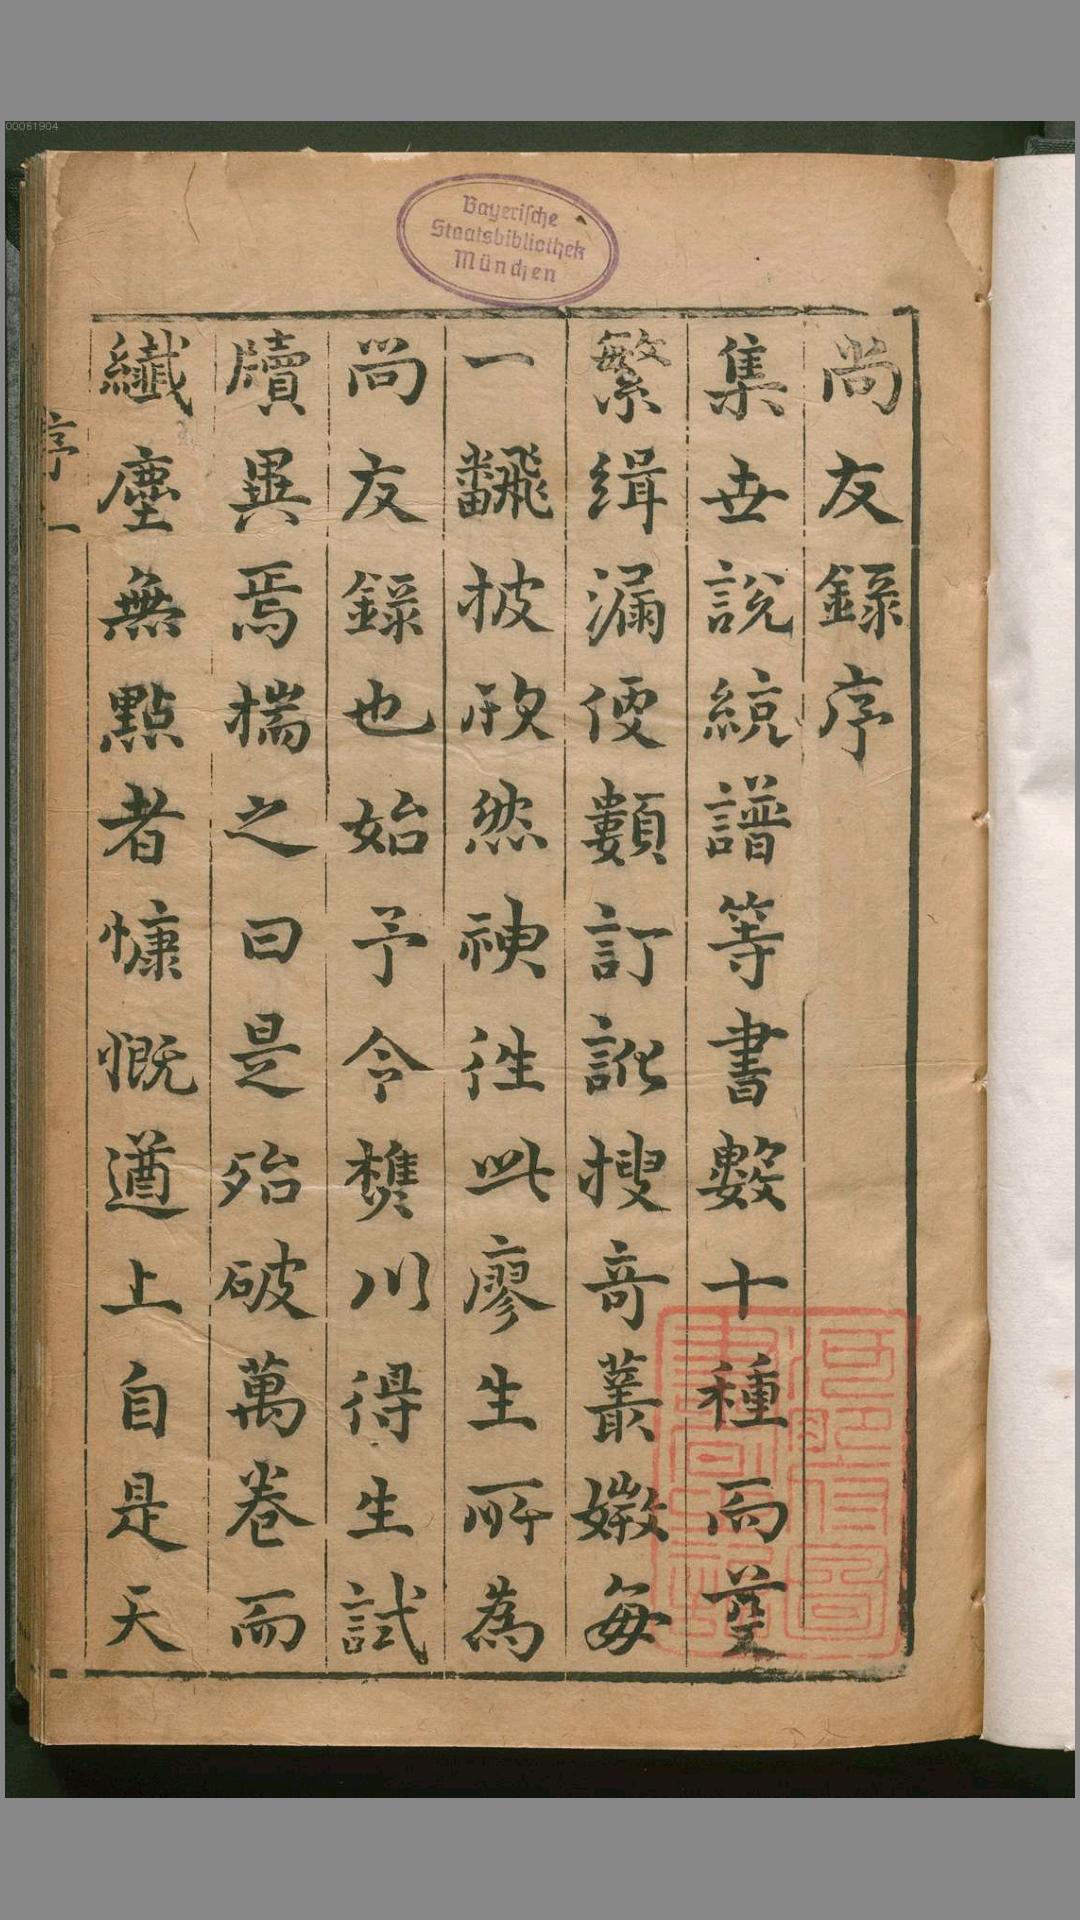 尚友錄序
集世說統譜等書數十種而芟
繁緝漏便顭訂訛搜竒叢媺每
一飜披欣然神徃此廖生所為
尚友錄也始予令樵川得生試
牘異焉揣之曰是殆破萬卷而
纎塵無點者慷慨遒上自是天
序
一
Bayerische
Staatsbibliothek
München
00061904